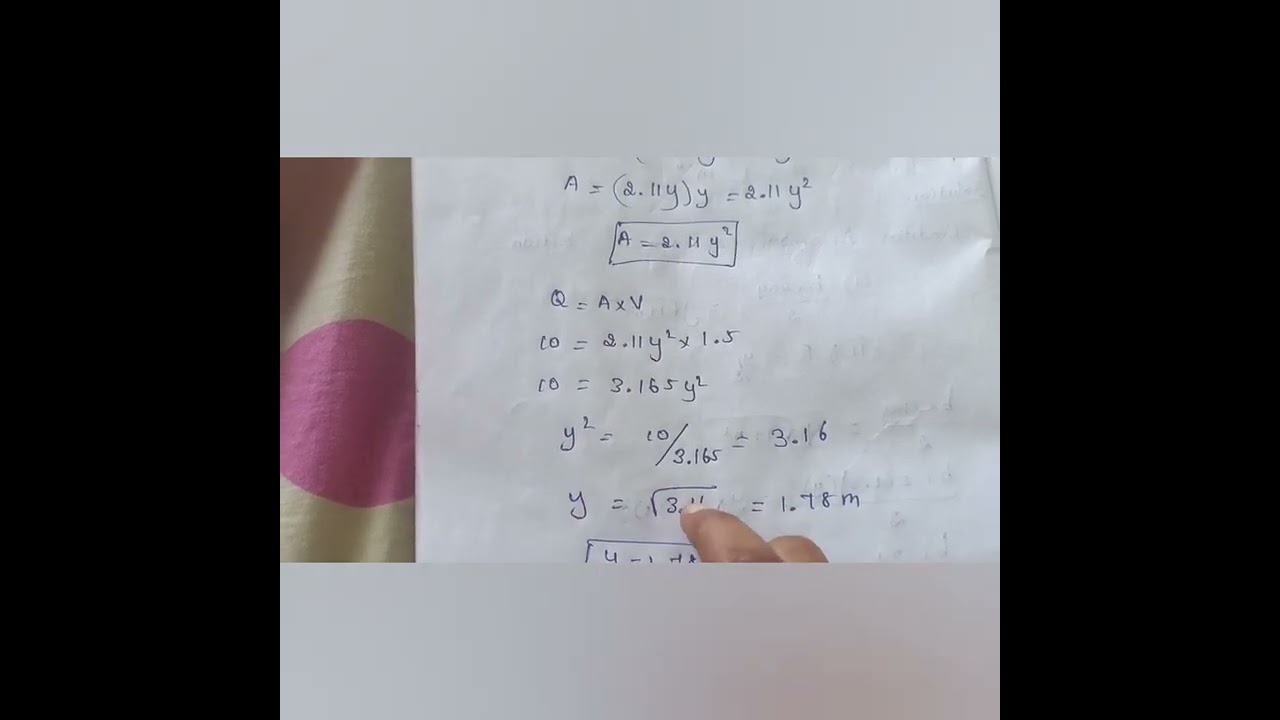 A = (2.11y)y = 2.11y²
A = 2.11 y²
Q = A×V
10 = 2.11y² × 1.5
10 = 3.165y²
y² = 10/3.165 = 3.16
y = = 1.78m